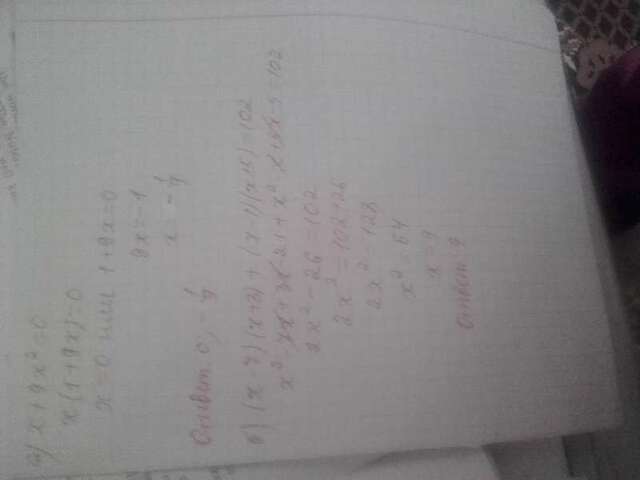 а) x + 9x² = 0
x(1+9x)=0
x=0 или 1+9x=0
9x=-1
x = -1/9
Ответ 0; -1/9
б) (x-7)(x+3)+(x-1)(x+5)=102
x²-7x+3x-21+x²-x+5x-5=102
2x²-26=102
2x²=102+26
2x²=128
x²=64
x=8
Ответ: 8